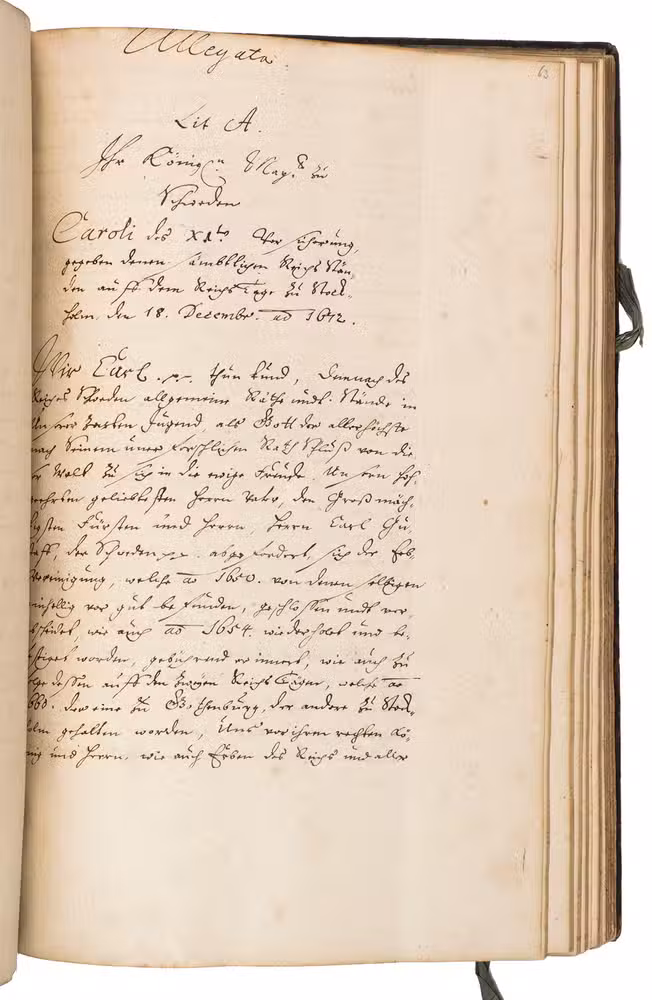 Allegata.
63
Lit A.
Ihr Königln. Mayt. zu
Schweden
Caroli des XIten Versicherung,
gegeben denen sämbtlichen Reichs Stän-
den auff dem Reichs Tage zu Stock-
holm, den 18. Decembr. ao 1672.
Wir Carl. p. thun kund, Demnach des
Reiches Schweden allgemeine Räthe undt Stände in
Unserer zarten Jugend, als Gott der allerhöchste
nach Seinem unerforschlichen Rath Schluß von die-
er Welt zu sich in die ewige Freude. Unsern hoch-
geehrten geliebtesten Herrn Vater, den Großmäch-
tigsten Fürsten und Herrn, Herrn Carl Gu-
staff, der Schweden p. abgefordert, sich der Erb-
Vereinigung, welche ao 1650. von denenselbigen
einhellig vor gut befunden, geschlossen undt ver-
abscheidet, wie auch ao 1654. wiederholet und be-
stiget worden, gebührend erinnert, wie auch zu
folge dessen auff den zweyen Reichs Tägen, welche ao
660. der eine zu Gothenburg, der andere zu Stock-
holm gehalten worden, Uns vor ihren rechten Kö-
nig und Herrn, wie auch Erben des Reichs und aller